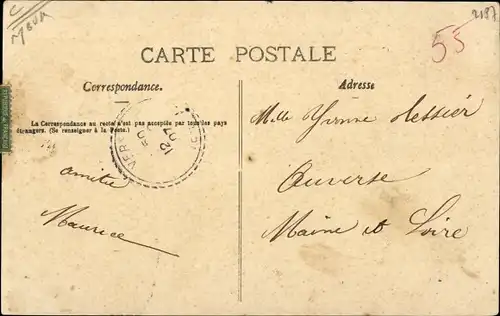 2197
55
CARTE POSTALE
Correspondance.
Adresse
La Correspondance au recto n'est pas acceptée par tous les pays
étrangers. (Se renseigner à la Poste.)
amitié
Maurice
Melle Yvonne Tessier
Auverse
Maine et Loire
VER
12
07